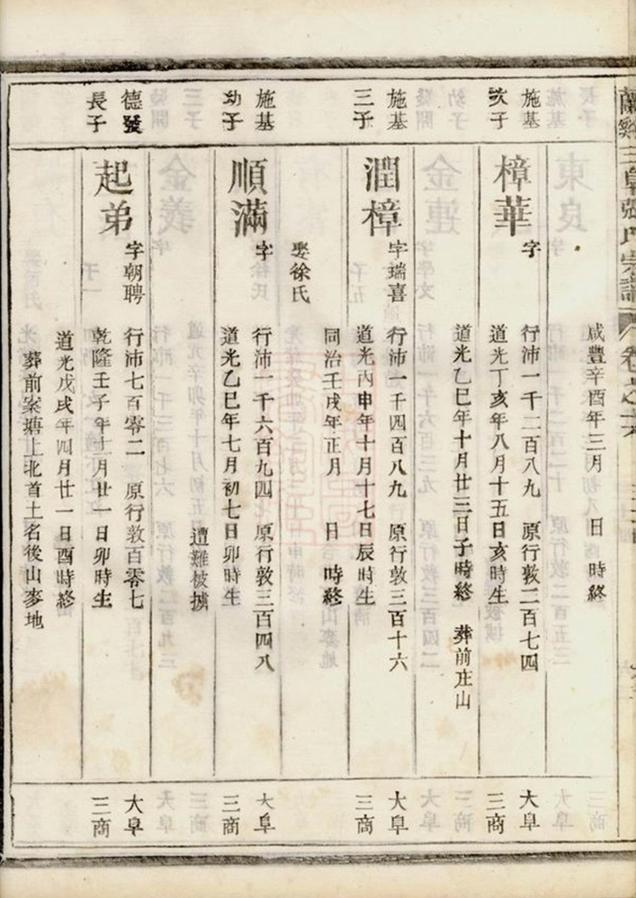 咸豐辛酉年三月　日　時終
施基
次子
樟華
字　行沛一千二百八九　原行敦二百七四
道光丁亥年八月十五日亥時生
道光乙巳年十月廿三日子時終　葬前庄山
大阜
三商
施基
三子
潤樟
字瑞喜　行沛一千四百八九　原行敦三百十六
道光丙申年十月十七日辰時生
同治壬戌年正月　日　時終
娶徐氏
大阜
三商
施基
幼子
順滿
字　行沛一千六百九四　原行敦三百四八
道光乙巳年七月初七日卯時生
遭難被擄
大阜
三商
德發
長子
起弟
字朝聘　行沛七百零二　原行敦百零七
乾隆壬子年十二月廿一日卯時生
道光戊戌年四月廿一日酉時終
葬前案塘上北首土名後山麥地
大阜
三商